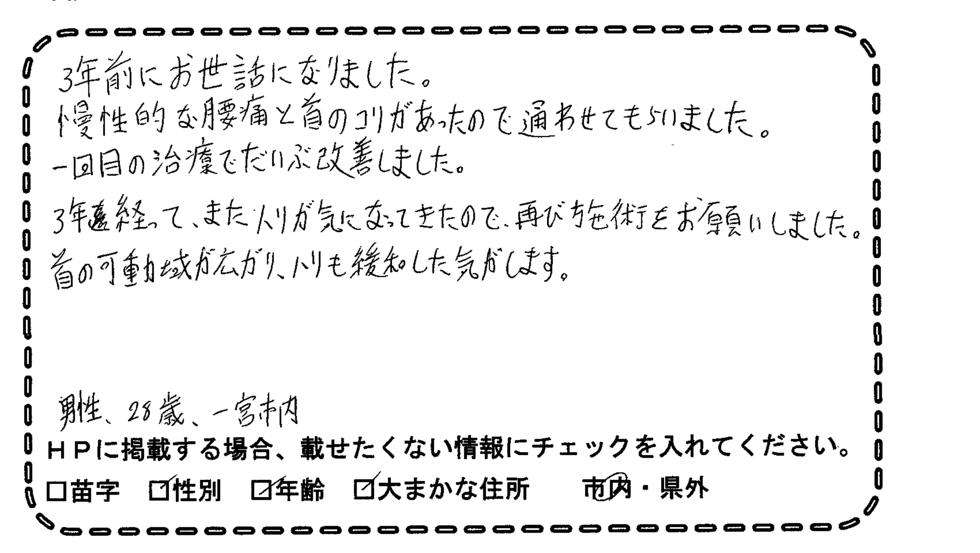 3年前にお世話になりました。
慢性的な腰痛と首のコリがあったので通わせてもらいました。
一回目の治療でだいぶ改善しました。
3年経って、またハリが気になってきたので、再び施術をお願いしました。
首の可動域が広がり、ハリも緩和した気がします。
男性、28歳、一宮市内
HPに掲載する場合、載せたくない情報にチェックを入れてください。
□苗字 ☑性別 ☑年齢 ☑大まかな住所 市内・県外